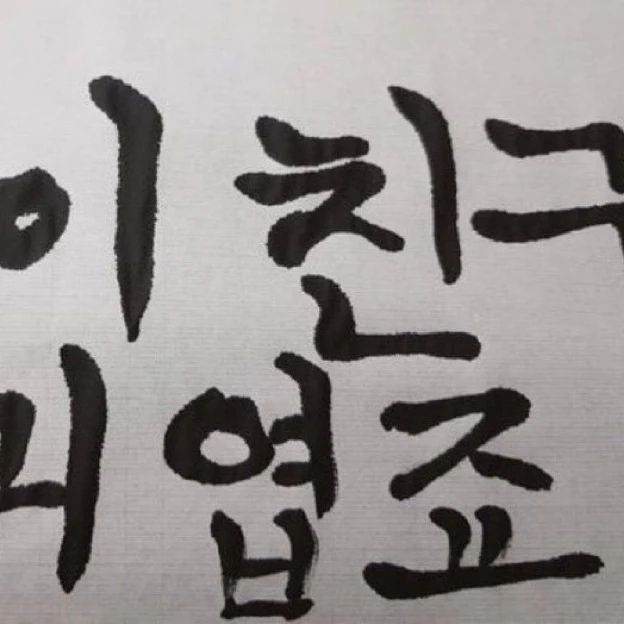 이 친구
괴엽죠